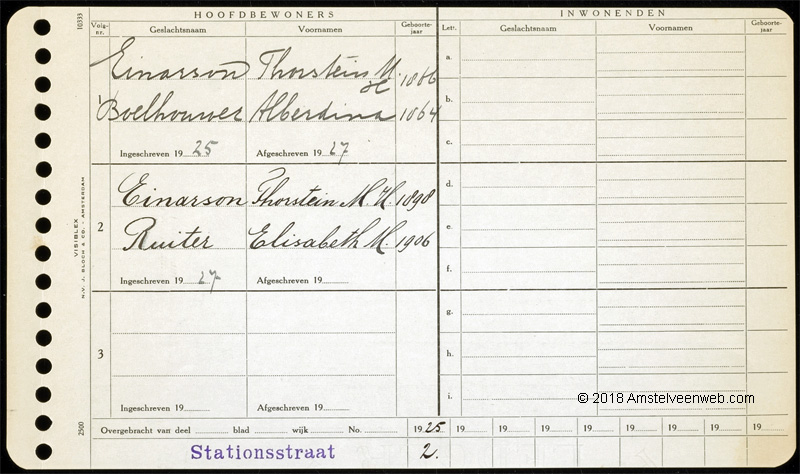 HOOFDBEWONERS
INWONENDEN
10333
Volg-nr.
Geslachtsnaam
Voornamen
Geboorte-jaar
Letr.
Geslachtsnaam
Voornamen
Geboorte-jaar
1
Einarson Thorstein M. H. 1866
Boelhouwer Alberdina 1864
Ingeschreven 19 25 Afgeschreven 19 27
2
Einarson Thorstein M. H. 1898
Ruiter Elisabeth M. 1906
Ingeschreven 19 27 Afgeschreven 19
3
Ingeschreven 19 Afgeschreven 19
a.
b.
c.
d.
e.
f.
g.
h.
i.
VISIBLEX
N.V. J. BLOCH & CO. - AMSTERDAM
2500
© 2018 Amstelveenweb.com
Overgebracht van deel blad wijk No. 1925 19 19 19 19 19 19 19 19
Stationsstraat 2.